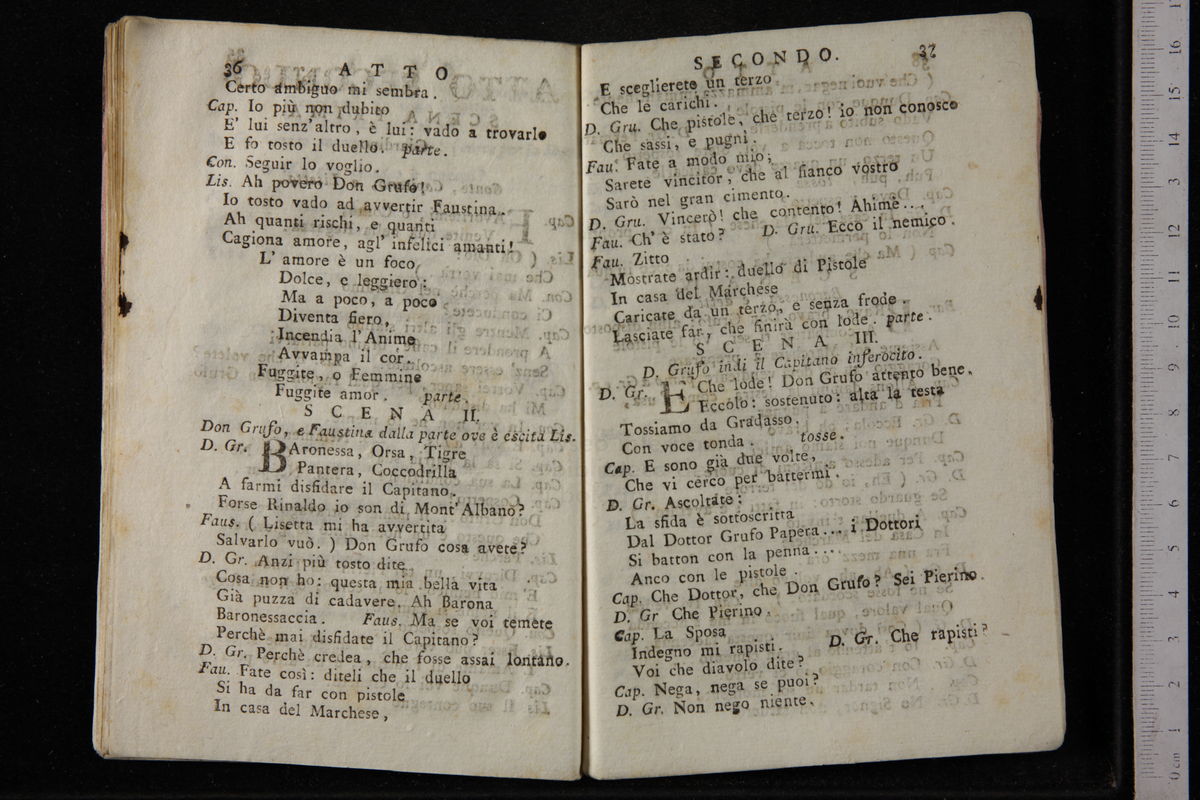 36 ATTO
Certo ambiguo mi sembra.
Cap. Io più non dubito
E' lui senz'altro, è lui: vado a trovarlo
E fo tosto il duello. parte.
Con. Seguir lo voglio.
Lis. Ah povero Don Grufo!
Io tosto vado ad avvertir Faustina.
Ah quanti rischi, e quanti
Cagiona amore, agl' infelici amanti!
L' amore è un foco
Dolce, e leggiero:
Ma a poco, a poco
Diventa fiero,
Incendia l'Anime
Avvampa il cor.
Fuggite, o Femmine
Fuggite amor. parte.
SCENA II.
Don Grufo, e Faustina dalla parte ove è escita Lis.
D. Gr. BAronessa, Orsa, Tigre
Pantera, Coccodrilla
A farmi disfidare il Capitano.
Forse Rinaldo io son di Mont'Albano?
Faus. ( Lisetta mi ha avvertita
Salvarlo vuò. ) Don Grufo cosa avete?
D. Gr. Anzi più tosto dite
Cosa non ho: questa mia bella vita
Già puzza di cadavere. Ah Barona
Baronessaccia. Faus. Ma se voi temete
Perchè mai disfidate il Capitano?
D. Gr. Perchè credea, che fosse assai lontano.
Fau. Fate così: diteli che il duello
Si ha da far con pistole
In casa del Marchese,
SECONDO. 37
E sceglierete un terzo
Che le carichi.
D. Gru. Che pistole, che terzo! io non conosco
Che sassi, e pugni.
Fau. Fate a modo mio;
Sarete vincitor, che al fianco vostro
Sarò nel gran cimento.
D. Gru. Vincerò! che contento! Ahimè....
Fau. Ch' è stato? D. Gru. Ecco il nemico.
Fau. Zitto
Mostrate ardir: duello di Pistole
In casa del Marchese
Caricate da un terzo, e senza frode.
Lasciate far, che finirà con lode. parte.
SCENA III.
D. Grufo indi il Capitano inferocito.
D. Gr. E Che lode! Don Grufo attento bene.
Eccolo: sostenuto: alta la testa
Tossiamo da Gradasso.
Con voce tonda. tosse.
Cap. E sono già due volte,
Che vi cerco per battermi.
D. Gr. Ascoltate:
La sfida è sottoscritta
Dal Dottor Grufo Papera... i Dottori
Si batton con la penna...
Anco con le pistole.
Cap. Che Dottor, che Don Grufo? Sei Pierino.
D. Gr Che Pierino.
Cap. La Sposa
Indegno mi rapisti. D. Gr. Che rapisti?
Voi che diavolo dite?
Cap. Nega, nega se puoi?
D. Gr. Non nego niente.